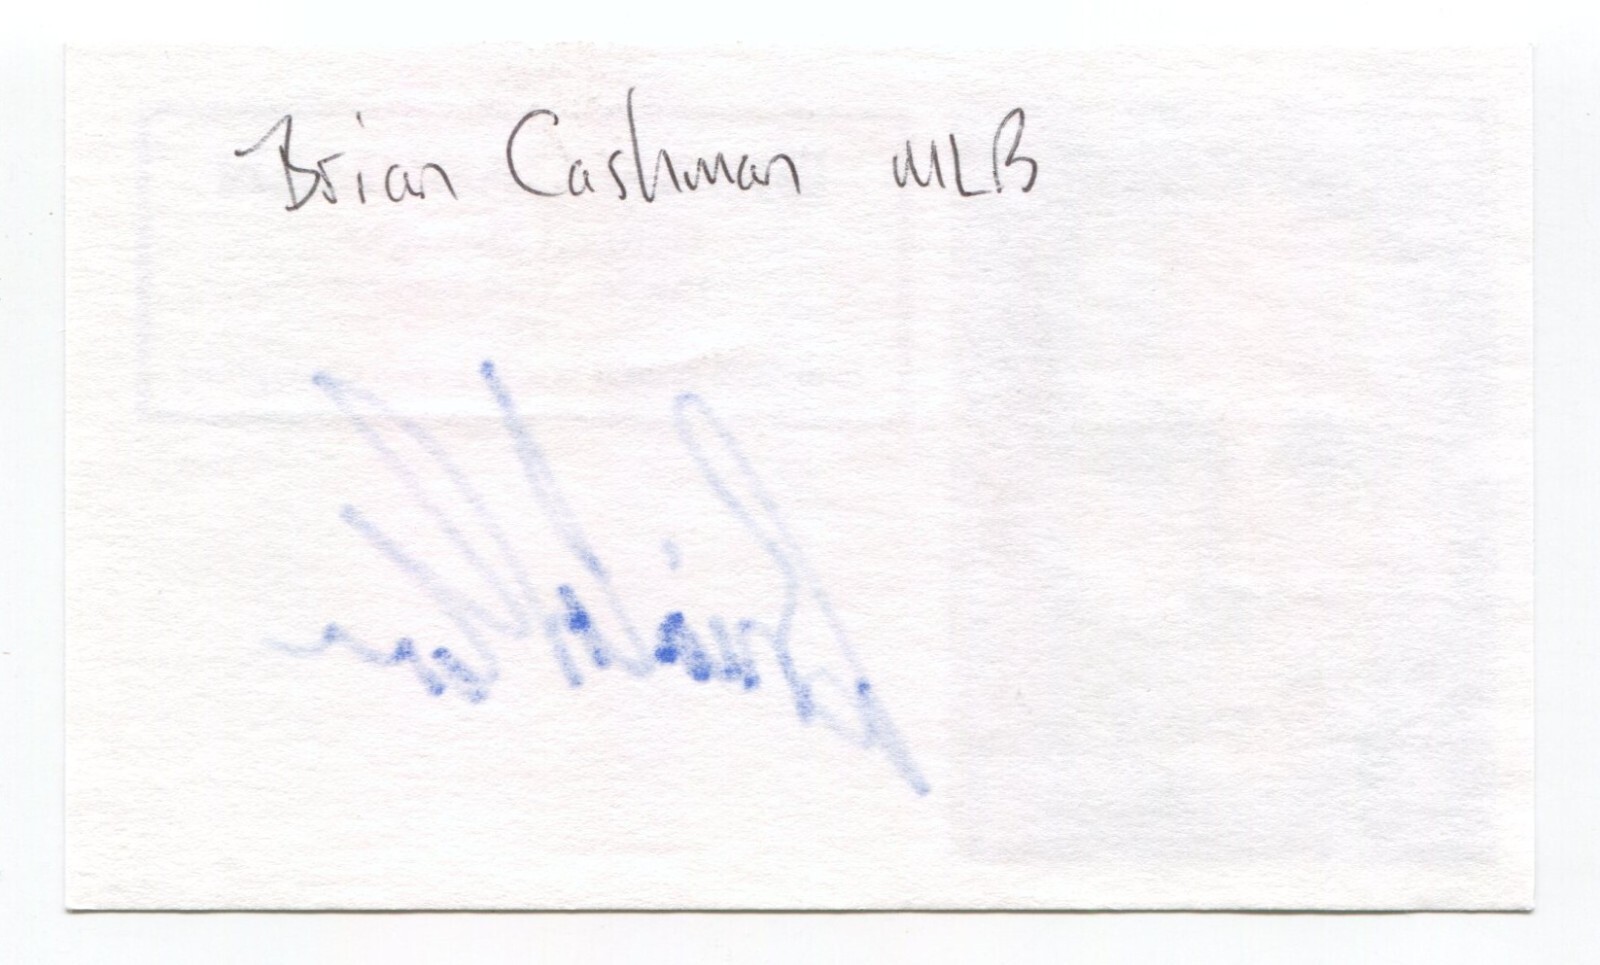 Brian Cashman MLB